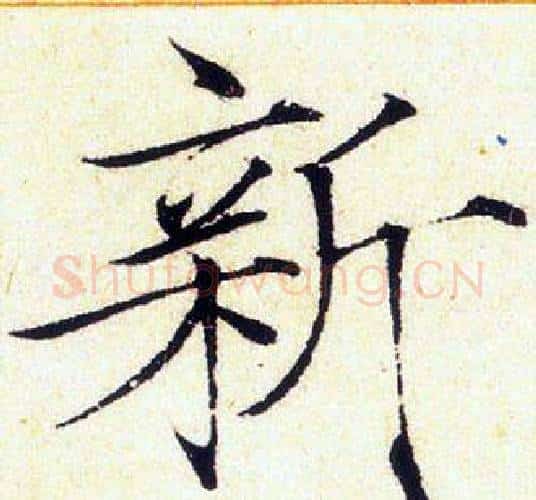 新
Shufawang.CN